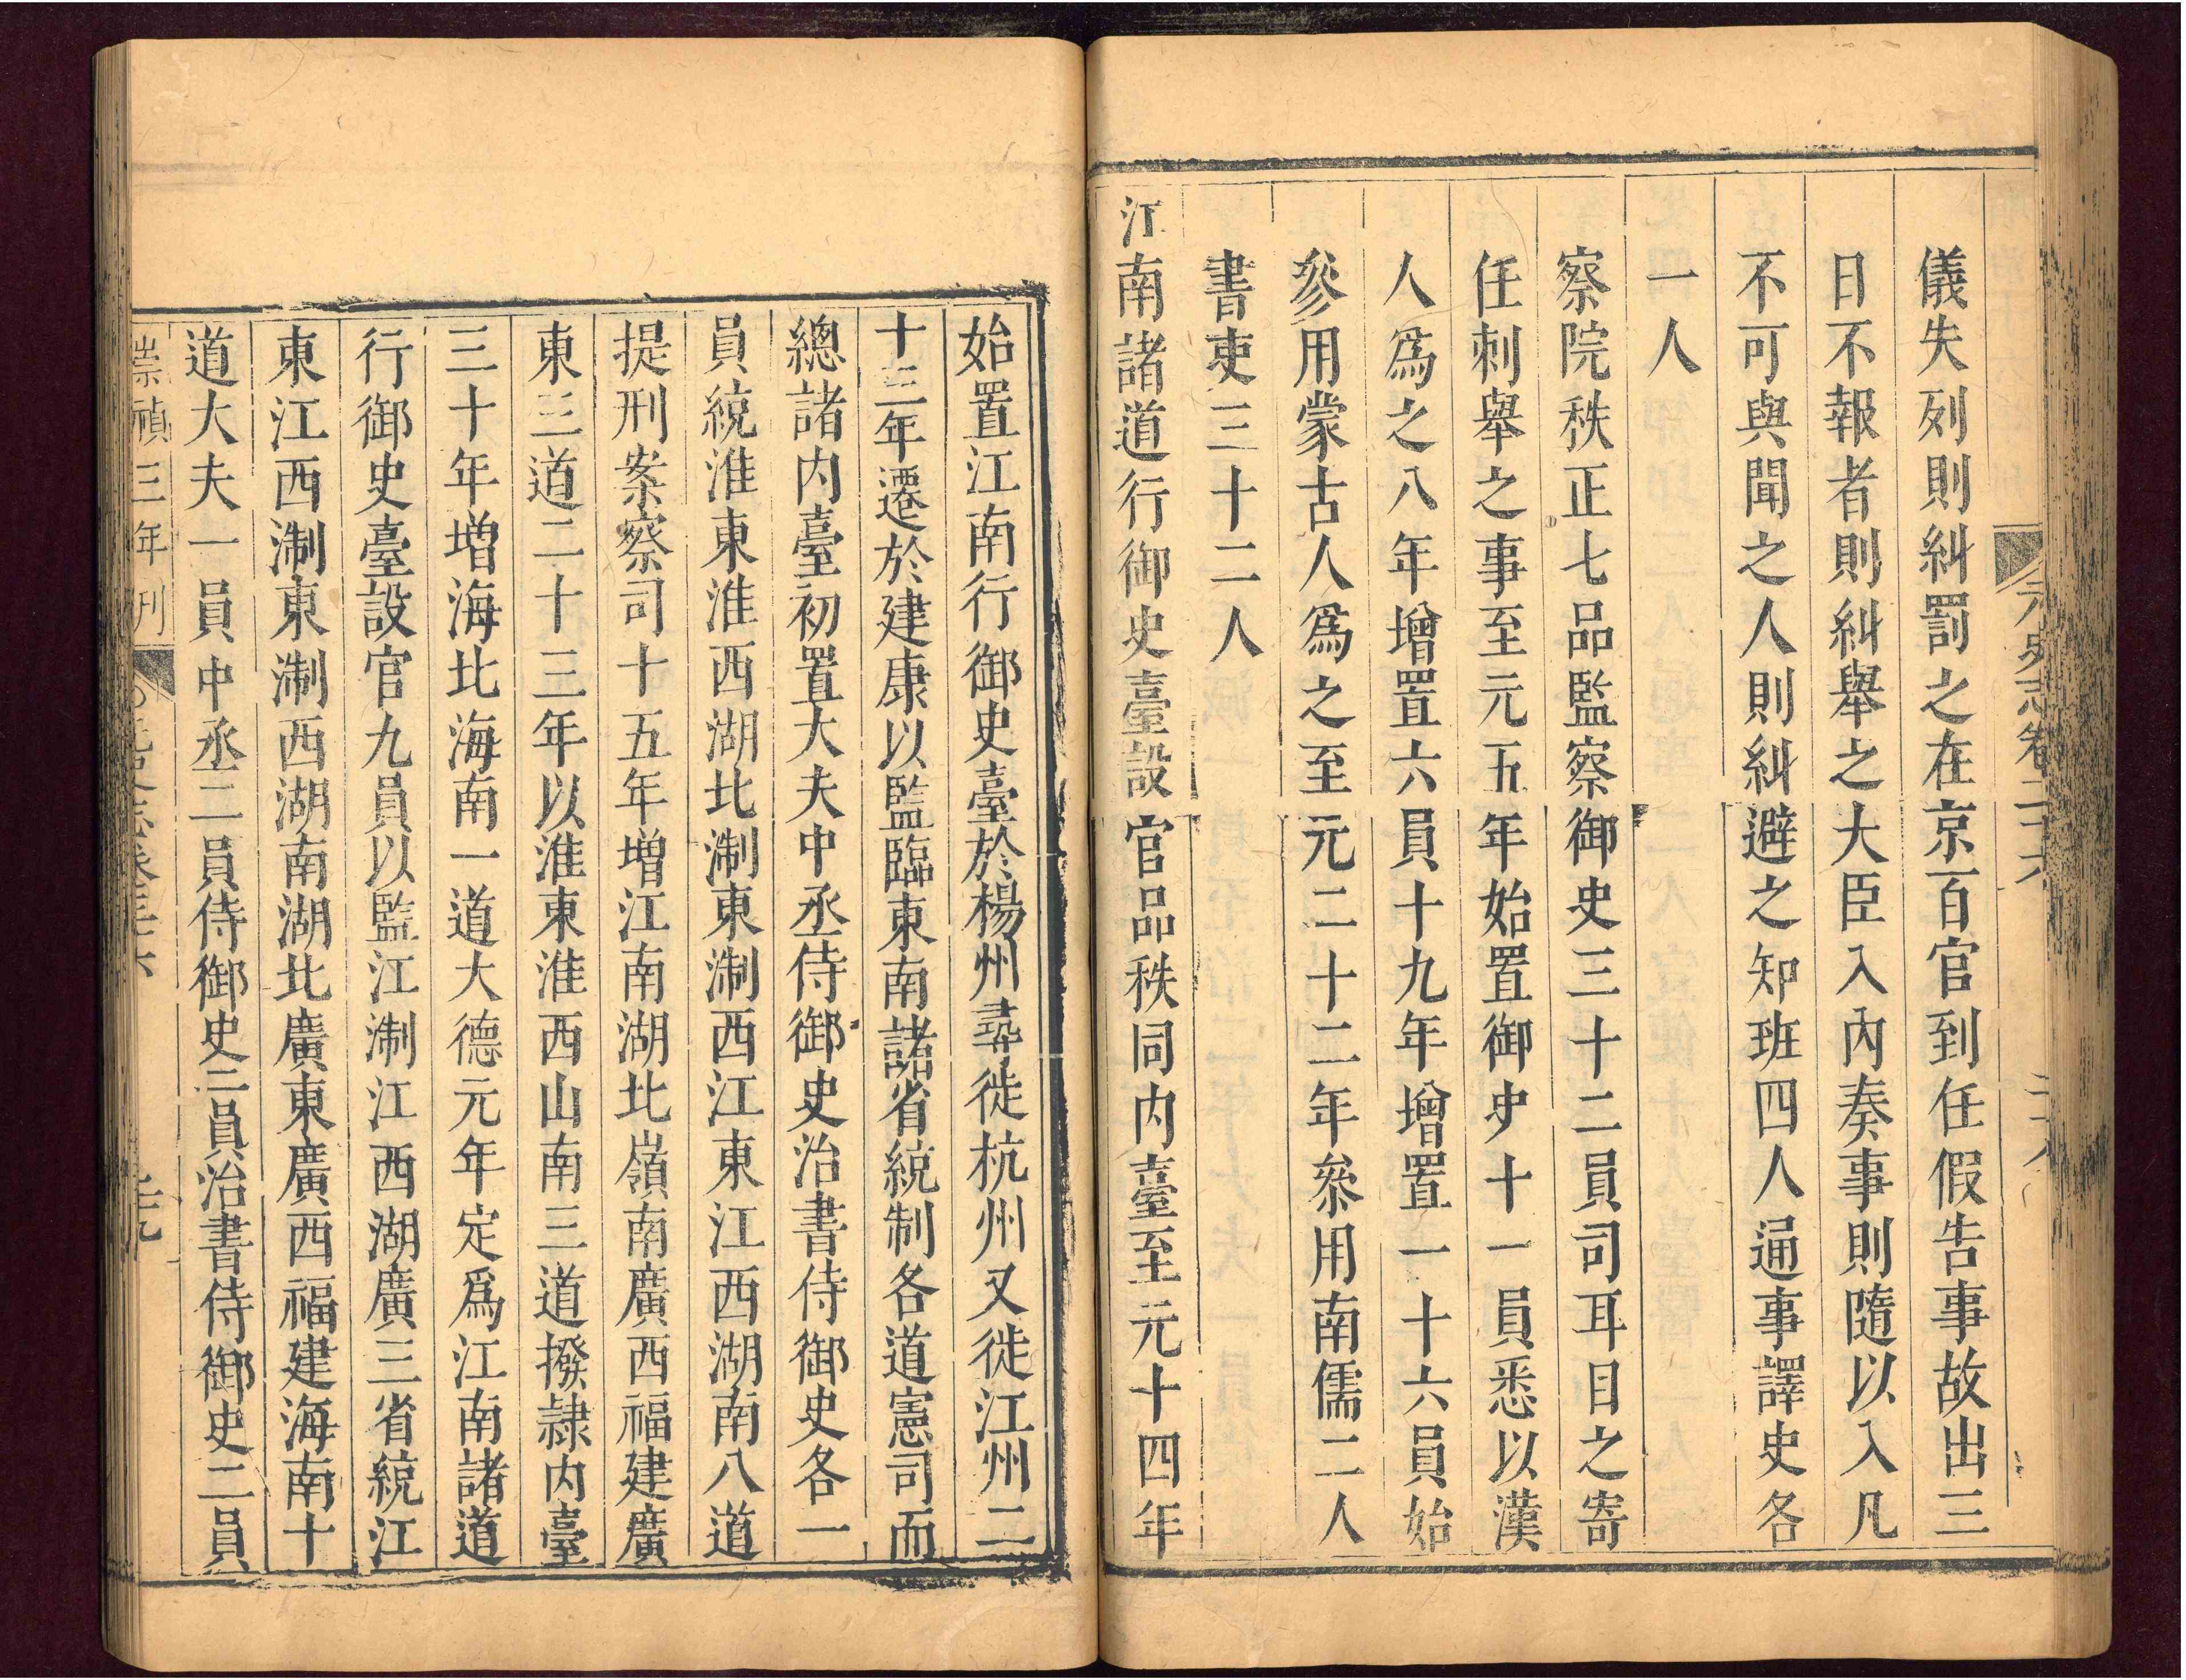 元史志卷二十六
儀失列則糾罰之在京百官到任假告事故出三
日不報者則糾舉之大臣入內奏事則隨以入凡
不可與聞之人則糾避之知班四人通事譯史各
一人
察院秩正七品監察御史三十二員司耳目之寄
任刺舉之事至元五年始置御史十一員悉以漢
人爲之八年增置六員十九年增置一十六員始
參用蒙古人爲之至元二十二年叅用南儒二人
書吏三十二人
江南諸道行御史臺設官品秩同內臺至元十四年
始置江南行御史臺於楊州尋徙杭州又徙江州二
十三年遷於建康以監臨東南諸省統制各道憲司而
總諸內臺初置大夫中丞侍御史治書侍御史各一
員統淮東淮西湖北淛東淛西江東江西湖南八道
提刑案察司十五年增江南湖北嶺南廣西福建廣
東三道二十三年以淮東淮西山南三道撥隷内臺
三十年增海北海南一道大德元年定爲江南諸道
行御史臺設官九員以監江淛江西湖廣三省統江
東江西淛東淛西湖南湖北廣東廣西福建海南十
道大夫一員中丞二員侍御史二員治書侍御史二員
崇禎三年刊